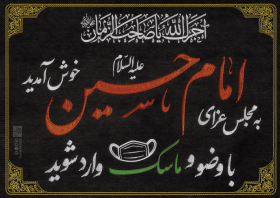 آجرک الله یا صاحب الزمان
به مجلس عزای
امام حسین
علیه السلام
خوش آمدید
با وضو و ماسک وارد شوید